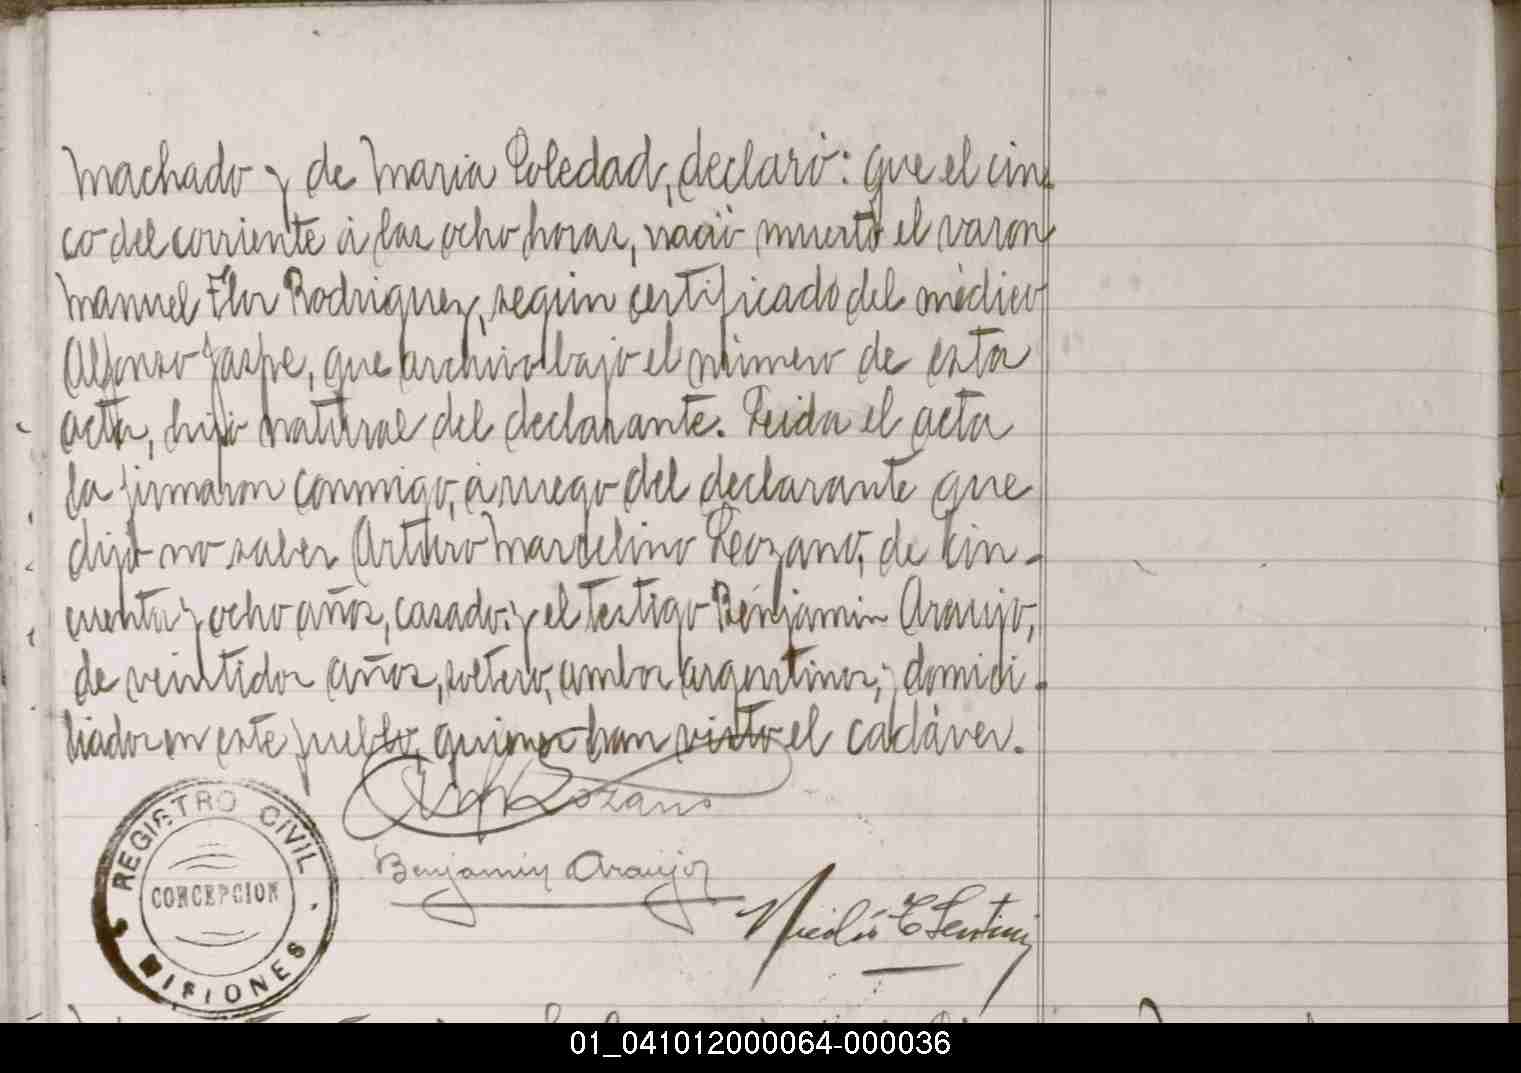 Machado y de Maria Soledad, declaró: que el cin-
co del corriente á las ocho horas, nació muerto el varon
Manuel Flor Rodriguez, según certificado del médico
Alfonso Jaspe, que archivo bajo el número de esta
acta, hijo natural del declarante. Leida el acta
la firmaron conmigo, á ruego del declarante que
dijo no saber Arturo Marcelino Lozano, de cin-
cuenta y ocho años, casado: y el testigo Benjamin Araujo,
de veintidos años, soltero, ambos argentinos, y domici-
liados en este pueblo, quienes han visto el cadáver.
Lozano
Benjamin Araujo
Nicolás
REGISTRO CIVIL
CONCEPCION
MISIONES
01_041012000064-000036